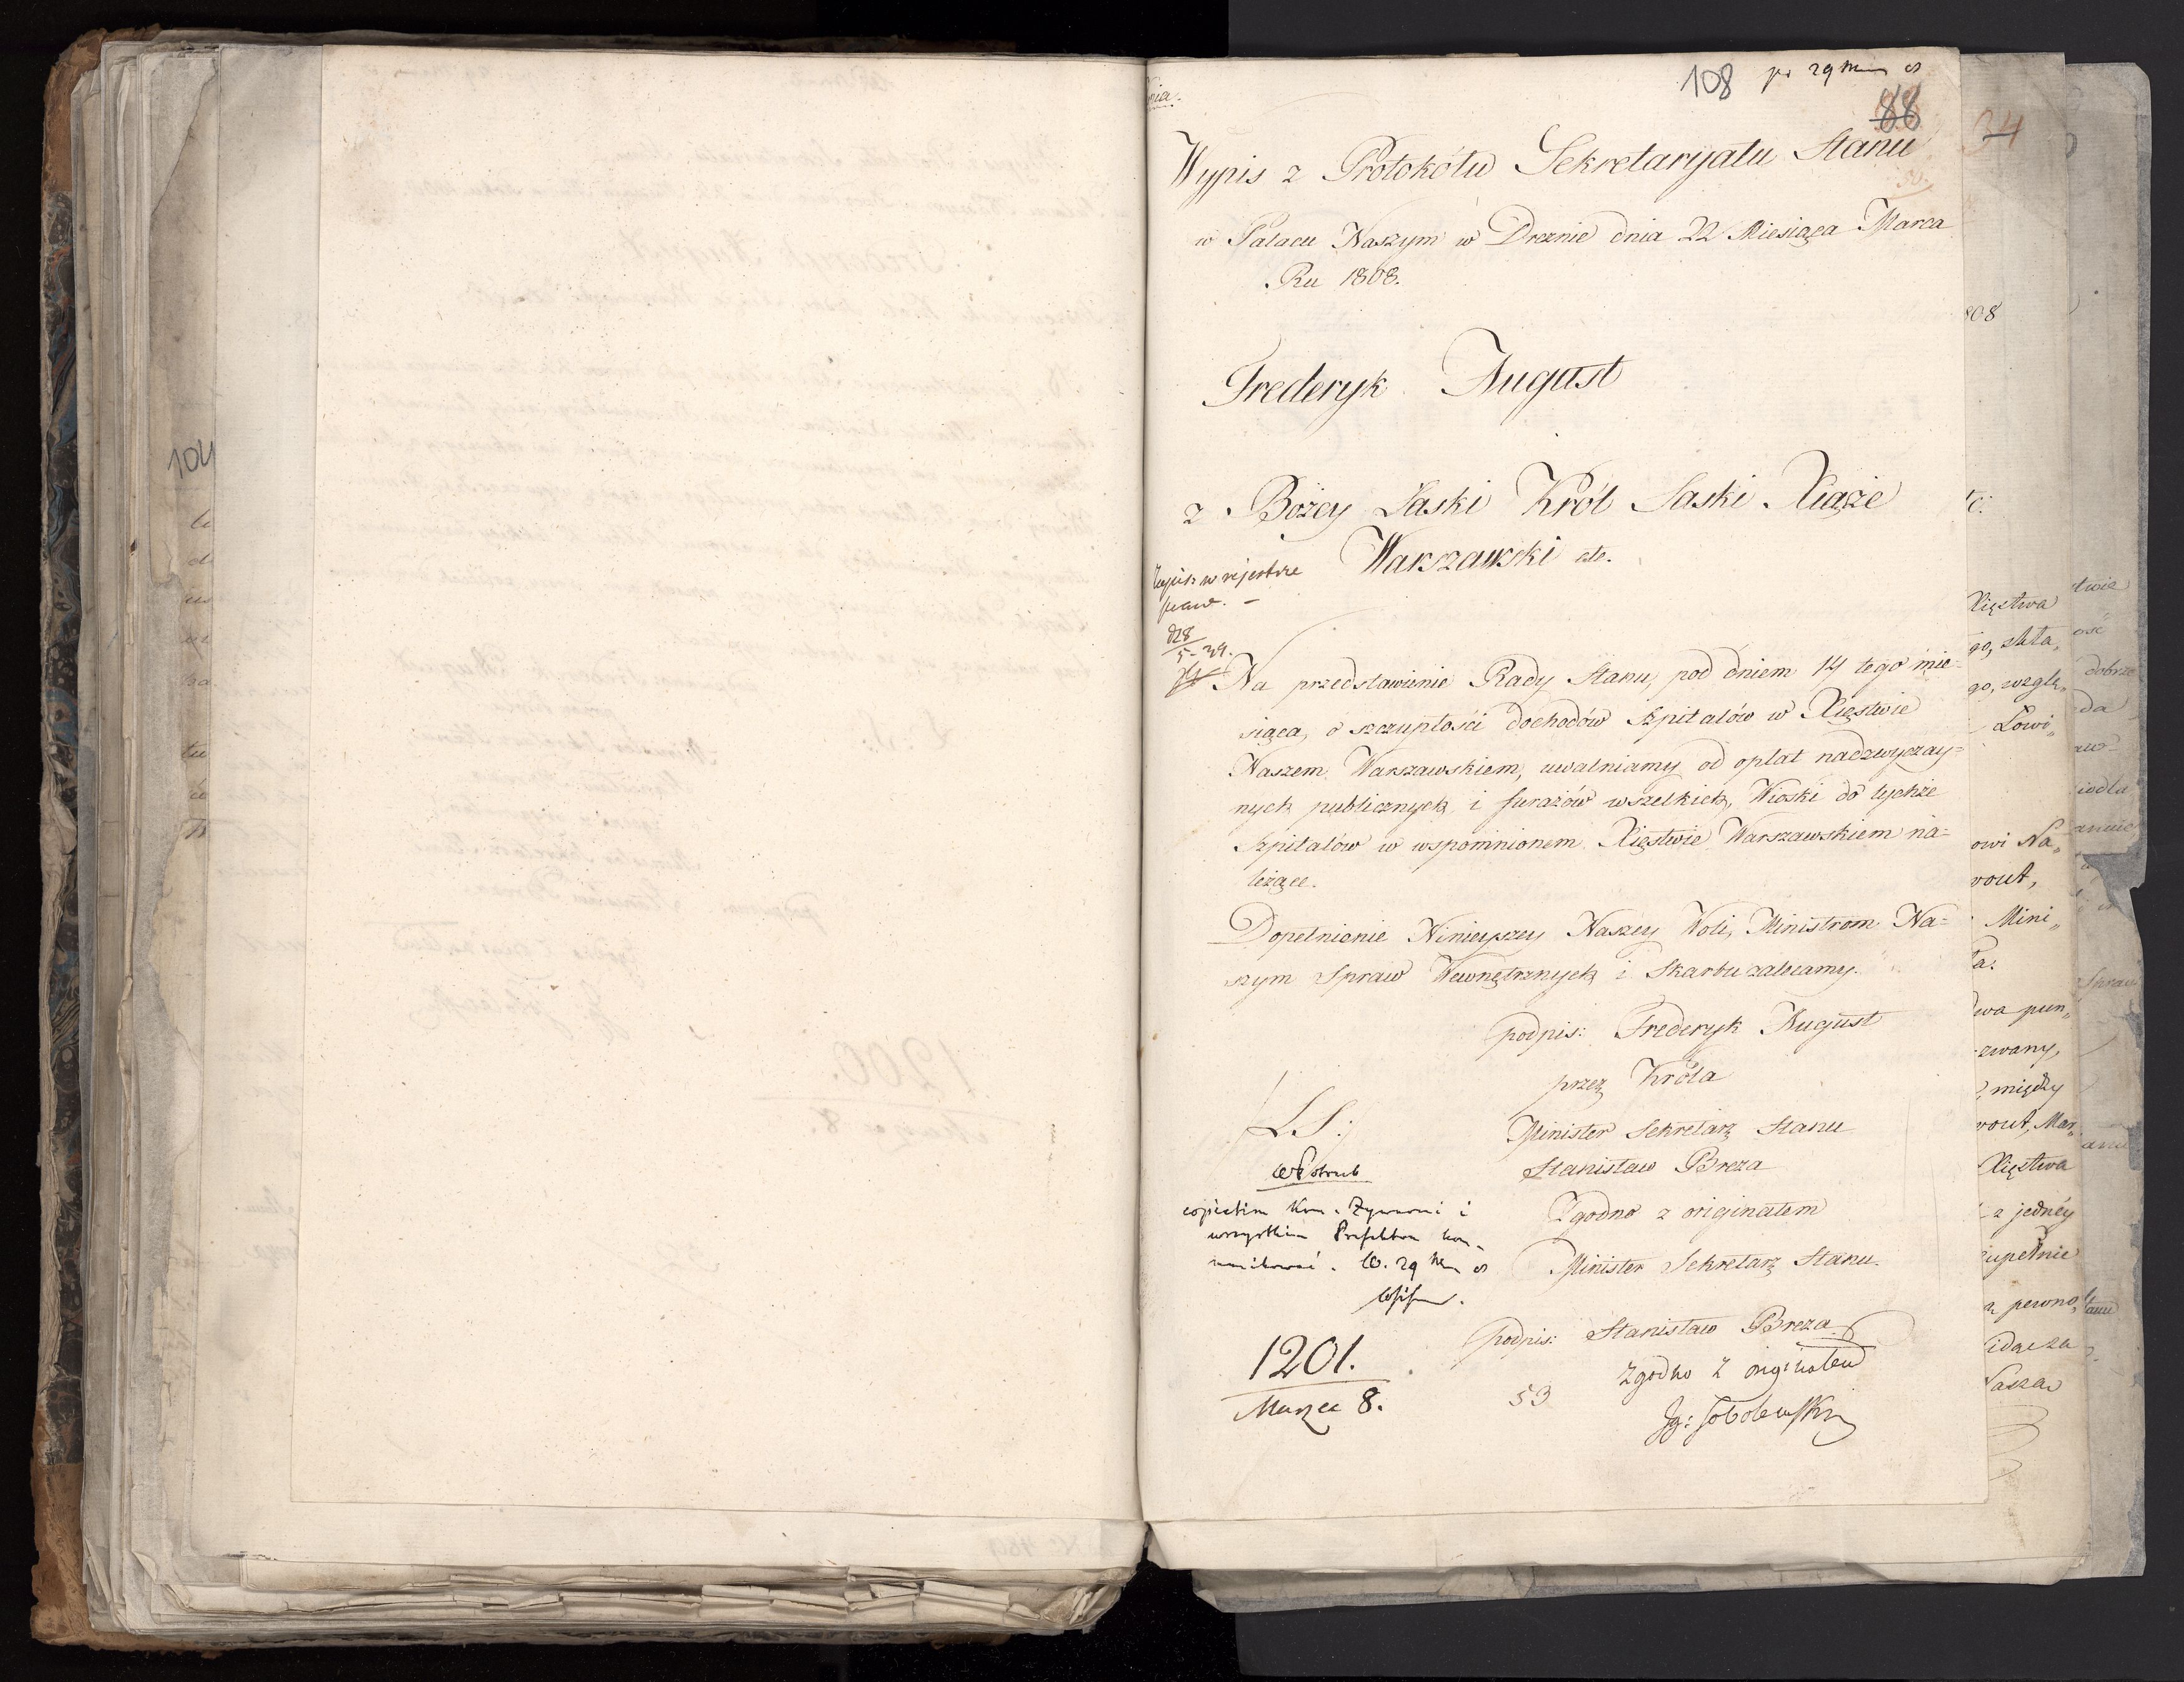 104
108 pr 29
88
34
Wypis z Protokółu Sekretaryatu Stanu
w Pałacu Naszym w Dreznie dnia 22 Miesiąca Marca
Ru 1808.
Frederyk August
z Bożey Łaski Król Saski Xiąże
Warszawski etc.
w rejestrze
828
5-39.
Na przedstawienie Rady Stanu, pod dniem 14 tego mie=
siąca, o szczupłości dochodów Szpitalów w Xięstwie
Naszem Warszawskiem, uwalniamy od opłat nadzwyczay=
nych publicznych i furażów wszelkich, Wioski do tychże
Szpitalów w wspomnionem Xięstwie Warszawskiem na=
leżące.
Dopełnienie Ninieyszey Naszey Woli, Ministrom Na=
szym Spraw Wewnętrznych i Skarbu zalecamy.
podpis: Frederyk August
przez Króla
LS:
Minister Sekretarz Stanu
Stanisław Breza
Zgodno z originałem
Minister Sekretarz Stanu.
podpis: Stanisław Breza
Zgodno z originałem
Ig: Sobolewski
i
wszystkim Prefektom kom=
munikować. 29
1201.
Marzec 8.
53
808
Xięstwa
Łowi„
owi Na„
rout,
Mini„
wa pun„
zwany,
między
rout, Mar„
Xięstwa
z jedney
upełnie
pewno„